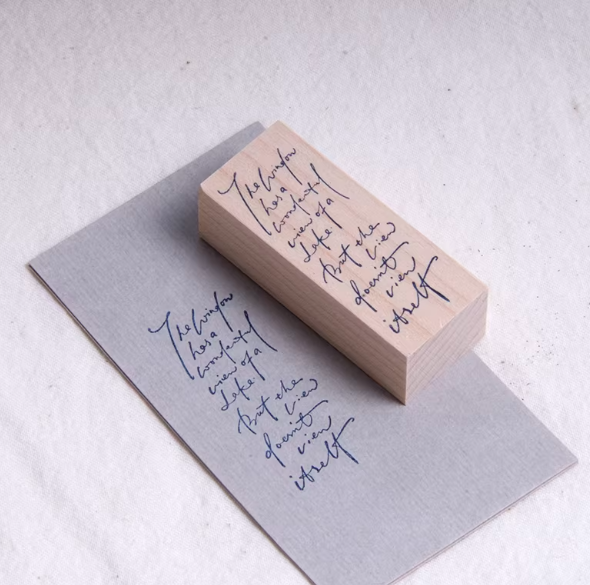 The window
has a
wonderful
view of a
lake.
But the
view
doesn't
view
itself
The window
has a
wonderful
view of a
lake.
But the
view
doesn't
view
itself